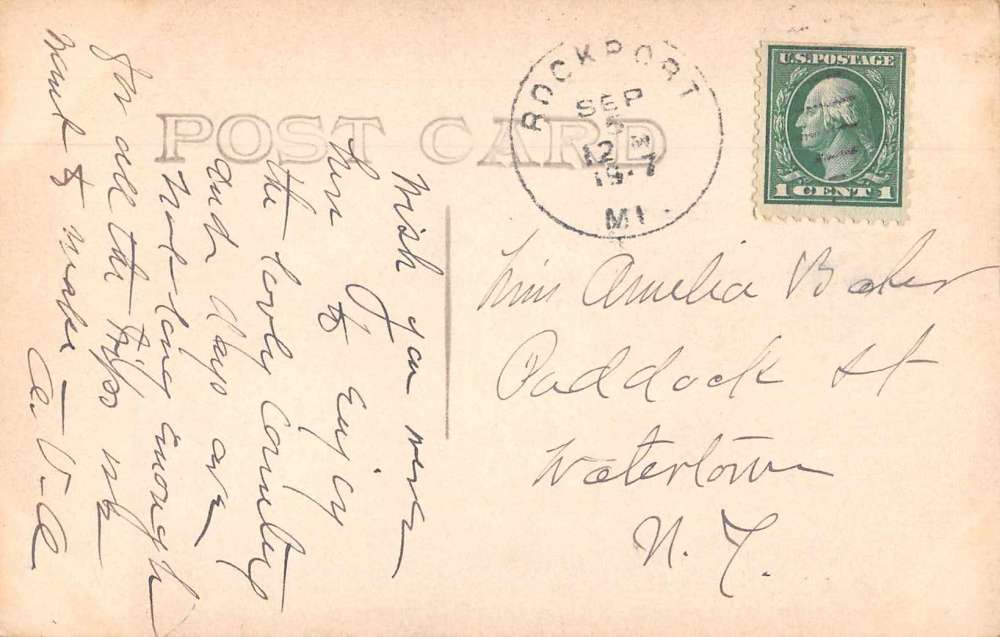 POST CARD
ROCKPORT
SEP
12 M
MI
U.S. POSTAGE
1 CENT 1
Wish you were
here to enjoy
the lovely country
and days are
not long enough
for all the trips we
want to make
Miss Amelia Baker
Paddock St
Watertown
N.Y.